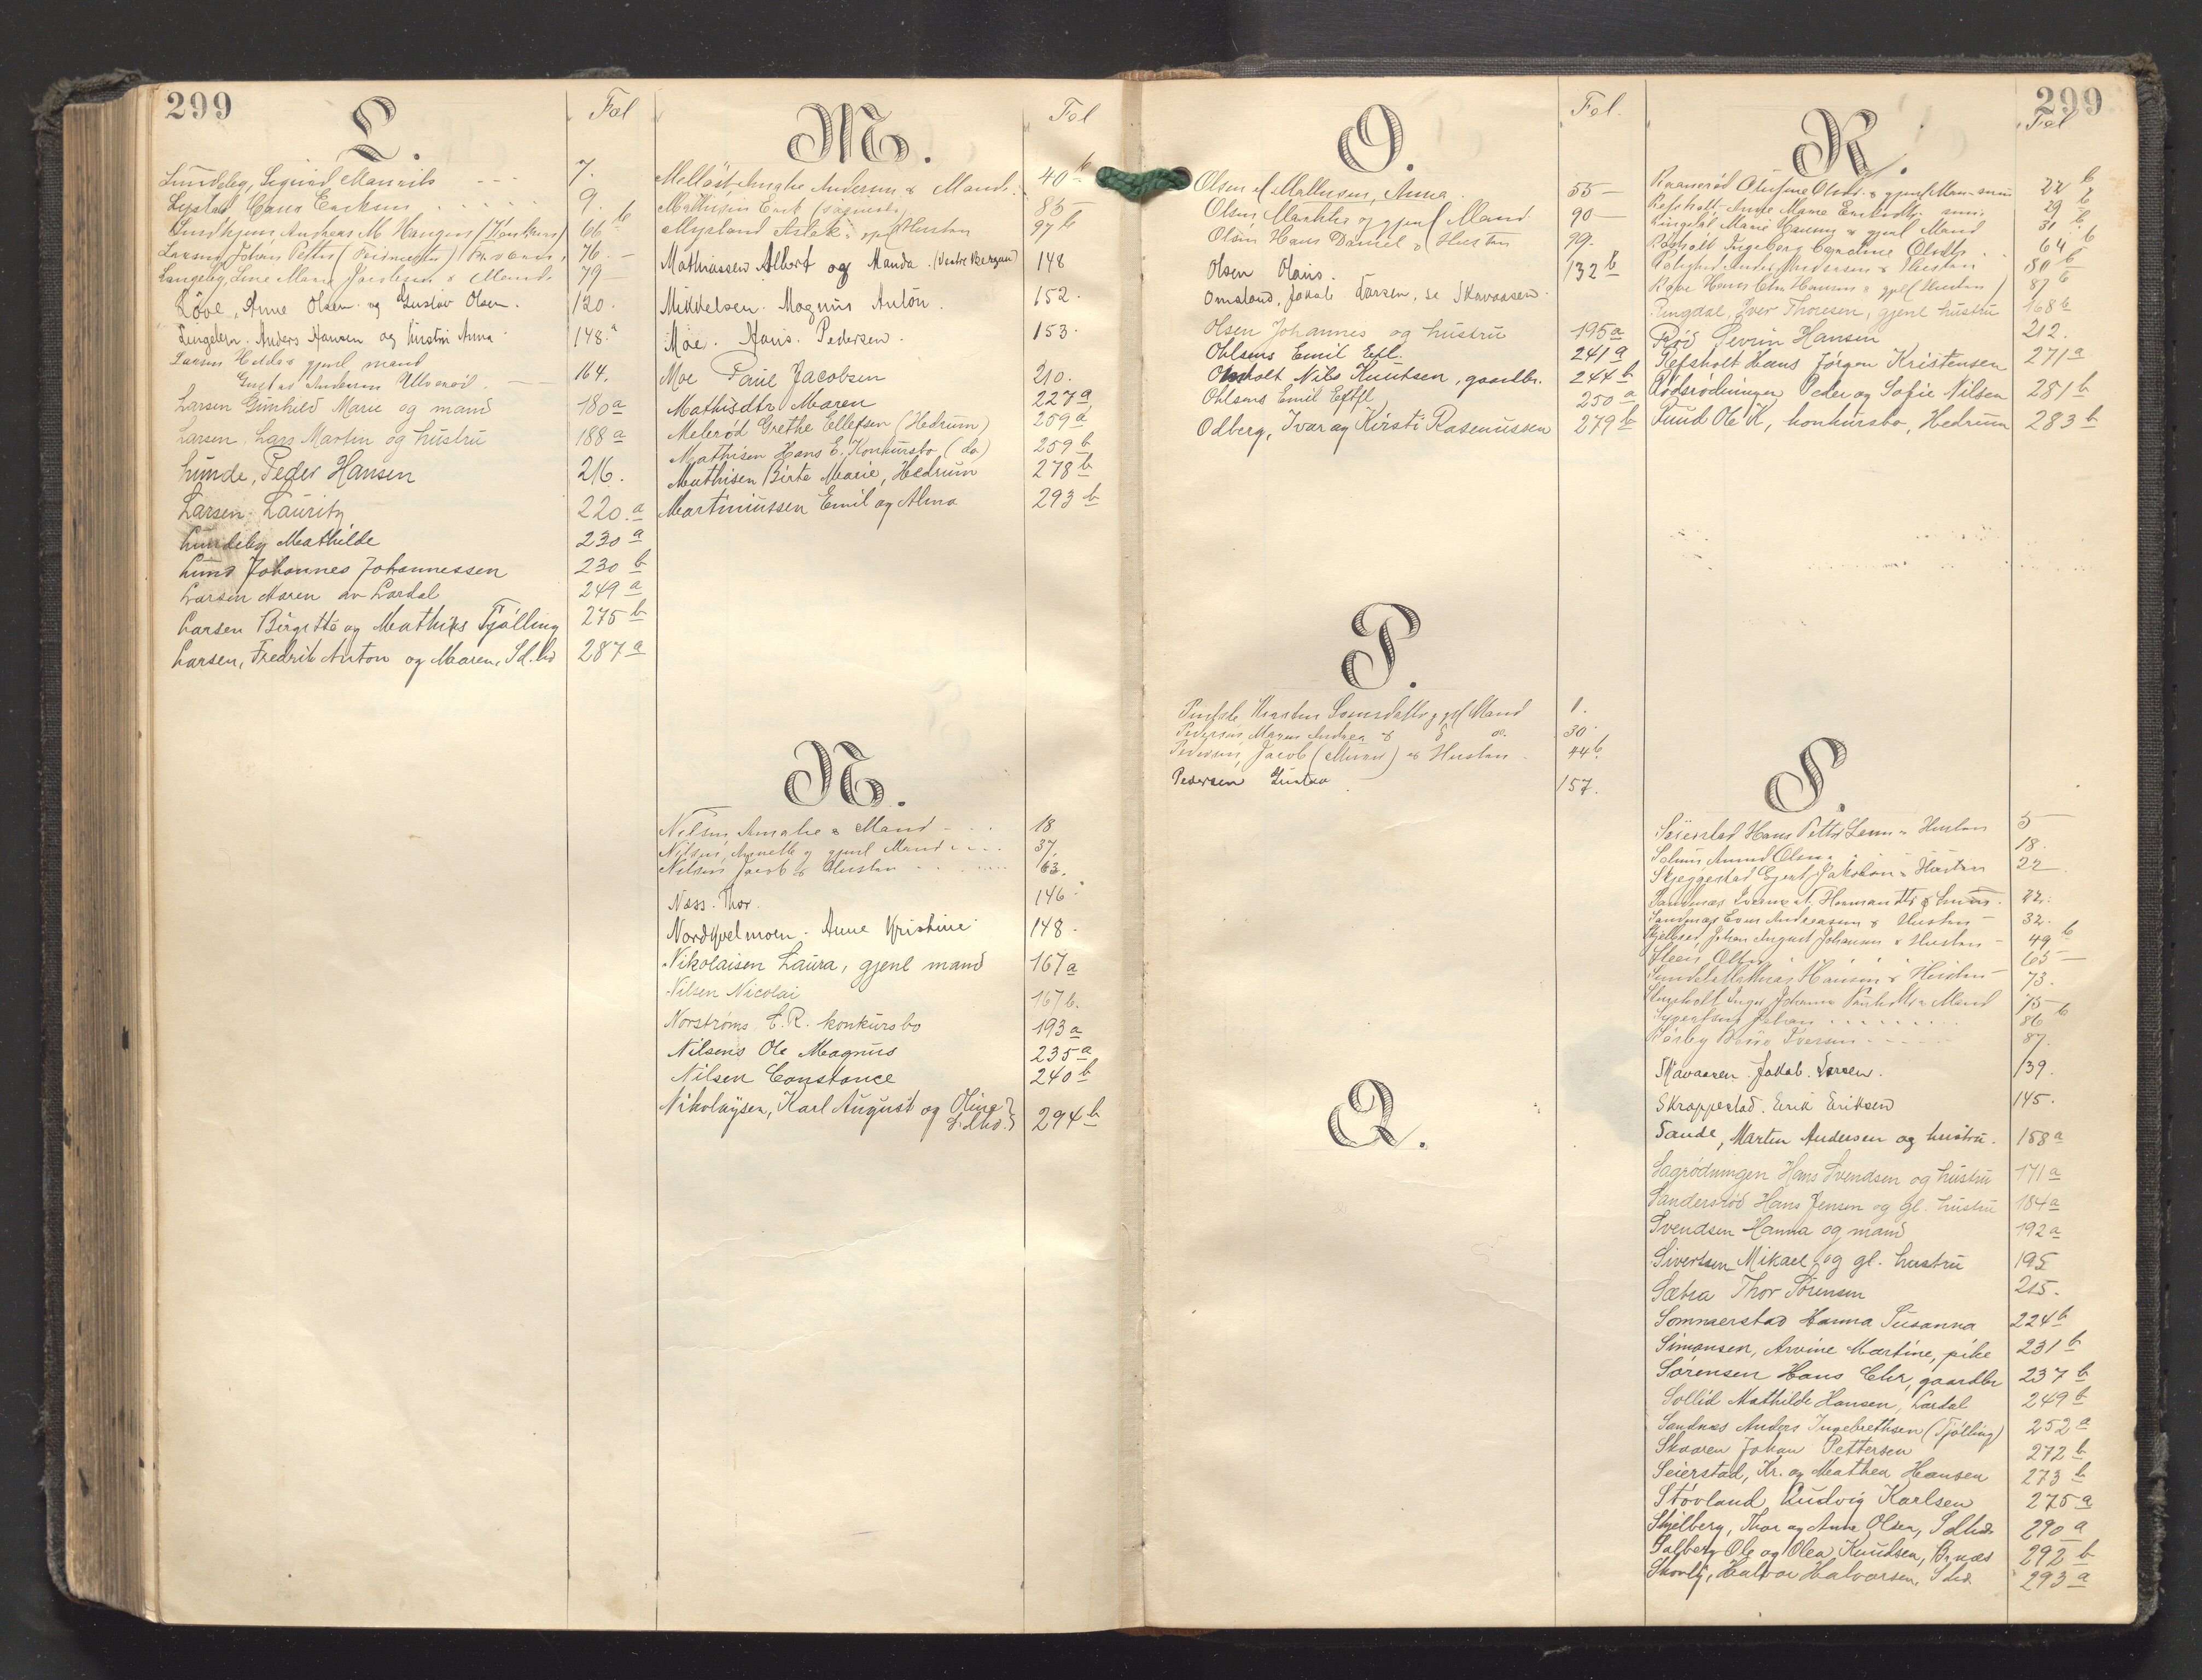 299
L.
Fol
Lundeby, Sigurd Maurits - - - 7.
9.
Lundhjem Andreas M. Haugen (Konkurs) 66 b
Larsen Johan Petter 76. -
Langeby, Line Marie Jacobsen & Mand. 79
Løve, Anne Olsen og Gustav Olsen. 120.
Lingelem. Anders Hansen og hustru Anna 148.a
Larsen Hedda & gjenl mand
Gustav Andersen Ulverød. - 164.
Larsen Gunhild Marie og mand 180a
Larsen, Lars Martin og hustru 188a
Lunde, Peder Hansen 216.
Larsen Lauritz 220.a
Lundeby Mathilde 230 a
Lund Johannes Johannessen 230 b
Larsen Maren av Lardal 249 a
Larsen Birgitte og Mathias Tjølling 275 b
Larsen, Fredrik Anton og Maren, Sd.hd 287 a
M.
Fol
Andersen & Mand. 40 b
85 -
Mysland Aslak 97 b
Mathiassen Albert og Manda. (Vestre Bergan) 148
Mikkelsen. Magnus Anton. 152.
Moe. Hans. Pedersen. 153.
Moe Paul Jacobsen 210.
Mathisdtr Maren 227a
Melerød Grethe Ellefsen (Hedrum) 259 a
Mathisen Hans E. Konkursbo (do) 259 b
Mathisen Birte Marie, Hedrum 278 b
Martiniussen Emil og Alma 293 b
N.
Nilsen Amalie & Mand - . . 18
Nilsen, Annette og gjenl Mand . . . . 37.
Nilsen Jacob & Hustru . . . . 63.
Næss. Thor. 146
Nordkvelmoen. Anne Kristine 148.
Nikolaisen Laura, gjenl mand 167a
Nilsen Nicolai 167b.
Norstrøms C. R. konkursbo 193a
Nilsens Ole Magnus 235a
Nilsen Constance 240b
Nikolaysen, Karl August og Oline }
S.dhd. } 294b
O.
Fol.
Olsen f. Mathisen, Anna 55 -
Olsen Marthe og gjenl Mand 90 -
Olsen Hans Daniel & Hustru 99.
Olsen Olaus. 132 b
Omsland, Jakob Larsen, se Skavaasen.
Olsen Johannes og hustru 195a
Ohlsens Emil Eftl. 241a
Omholt Nils Knutsen, gaardbr. 244b
Ohlsens Emil Eftfl 250 a
Odberg, Ivar og Kirsti Rasmussen 279b
P.
Kirsten gjenl Mand 1.
Pedersen Maren Andrea & 30.
Pedersen, Jacob (Murer) & Hustru - 44b.
Pedersen Gustav 157.
Q.
R.
299
Fol
22 b
Refsholt Anne Marie 29 b
Ringdal Marie Hansen & gjenl Mand 31 b
Røsholt Ingeborg Caroline Olsdtr. 64 b
80 b
87 b
Ringdal, Iver Thoresen, gjenl hustru 168b
Rød Sevrin Hansen 212.
Refsholt Hans Jørgen Kristensen 271a
Rødsrødningen Peder og Sofie Nilsen 281b
Ruud Ole K, konkursbo, Hedrum 283b
S.
Seierstad Hans Petter & Hustru 5 -
Olsen 18.
Skjeggestad Ejert Jakobsen & Hustru 22
22.
Sandnæs Even Andreassen & Hustru - 32.
Skjelbred, Johan August Johansen & Hustru - 49 b
65 -
Mathias Hansen & Hustru - 73.
75 -
86 b
Iversen - - - - 87.
Skavaasen. Jakob. Larsen. 139.
Skroppestad. Erik Eriksen 145.
Sande, Martin Andersen og hustru. 158 a
Sagrødningen Hans Svendsen og hustru 171a
Sandersrød Hans Jensen og gl. hustru 184a
Svendsen Hanna og mand 192a
Sivertsen Mikael og gl. hustru 195
Sætra Thor Sørensen 215.
Sommerstad Hanna Susanna 224b
Simonsen, Arvine Martine, pike 231 b
Sørensen Hans Chr, gaardbr 237 b
Sollid Mathilde Hansen, Lardal 249 b
Sandnæs Anders Ingebrethsen (Tjølling) 252 a
Skaaren Johan Pettersen 272 b
Seierstad, Kr. og Mathea Hansen 273 b
Støvland Ludvig Karlsen 275 a
Skjelberg, Thor og Anne Olsen, Sdhd. 290 a
Solberg Ole og Olea Knudsen, Br.næs 292 b
Skovly, Halvor Halvorsen, S.hd. 293 a